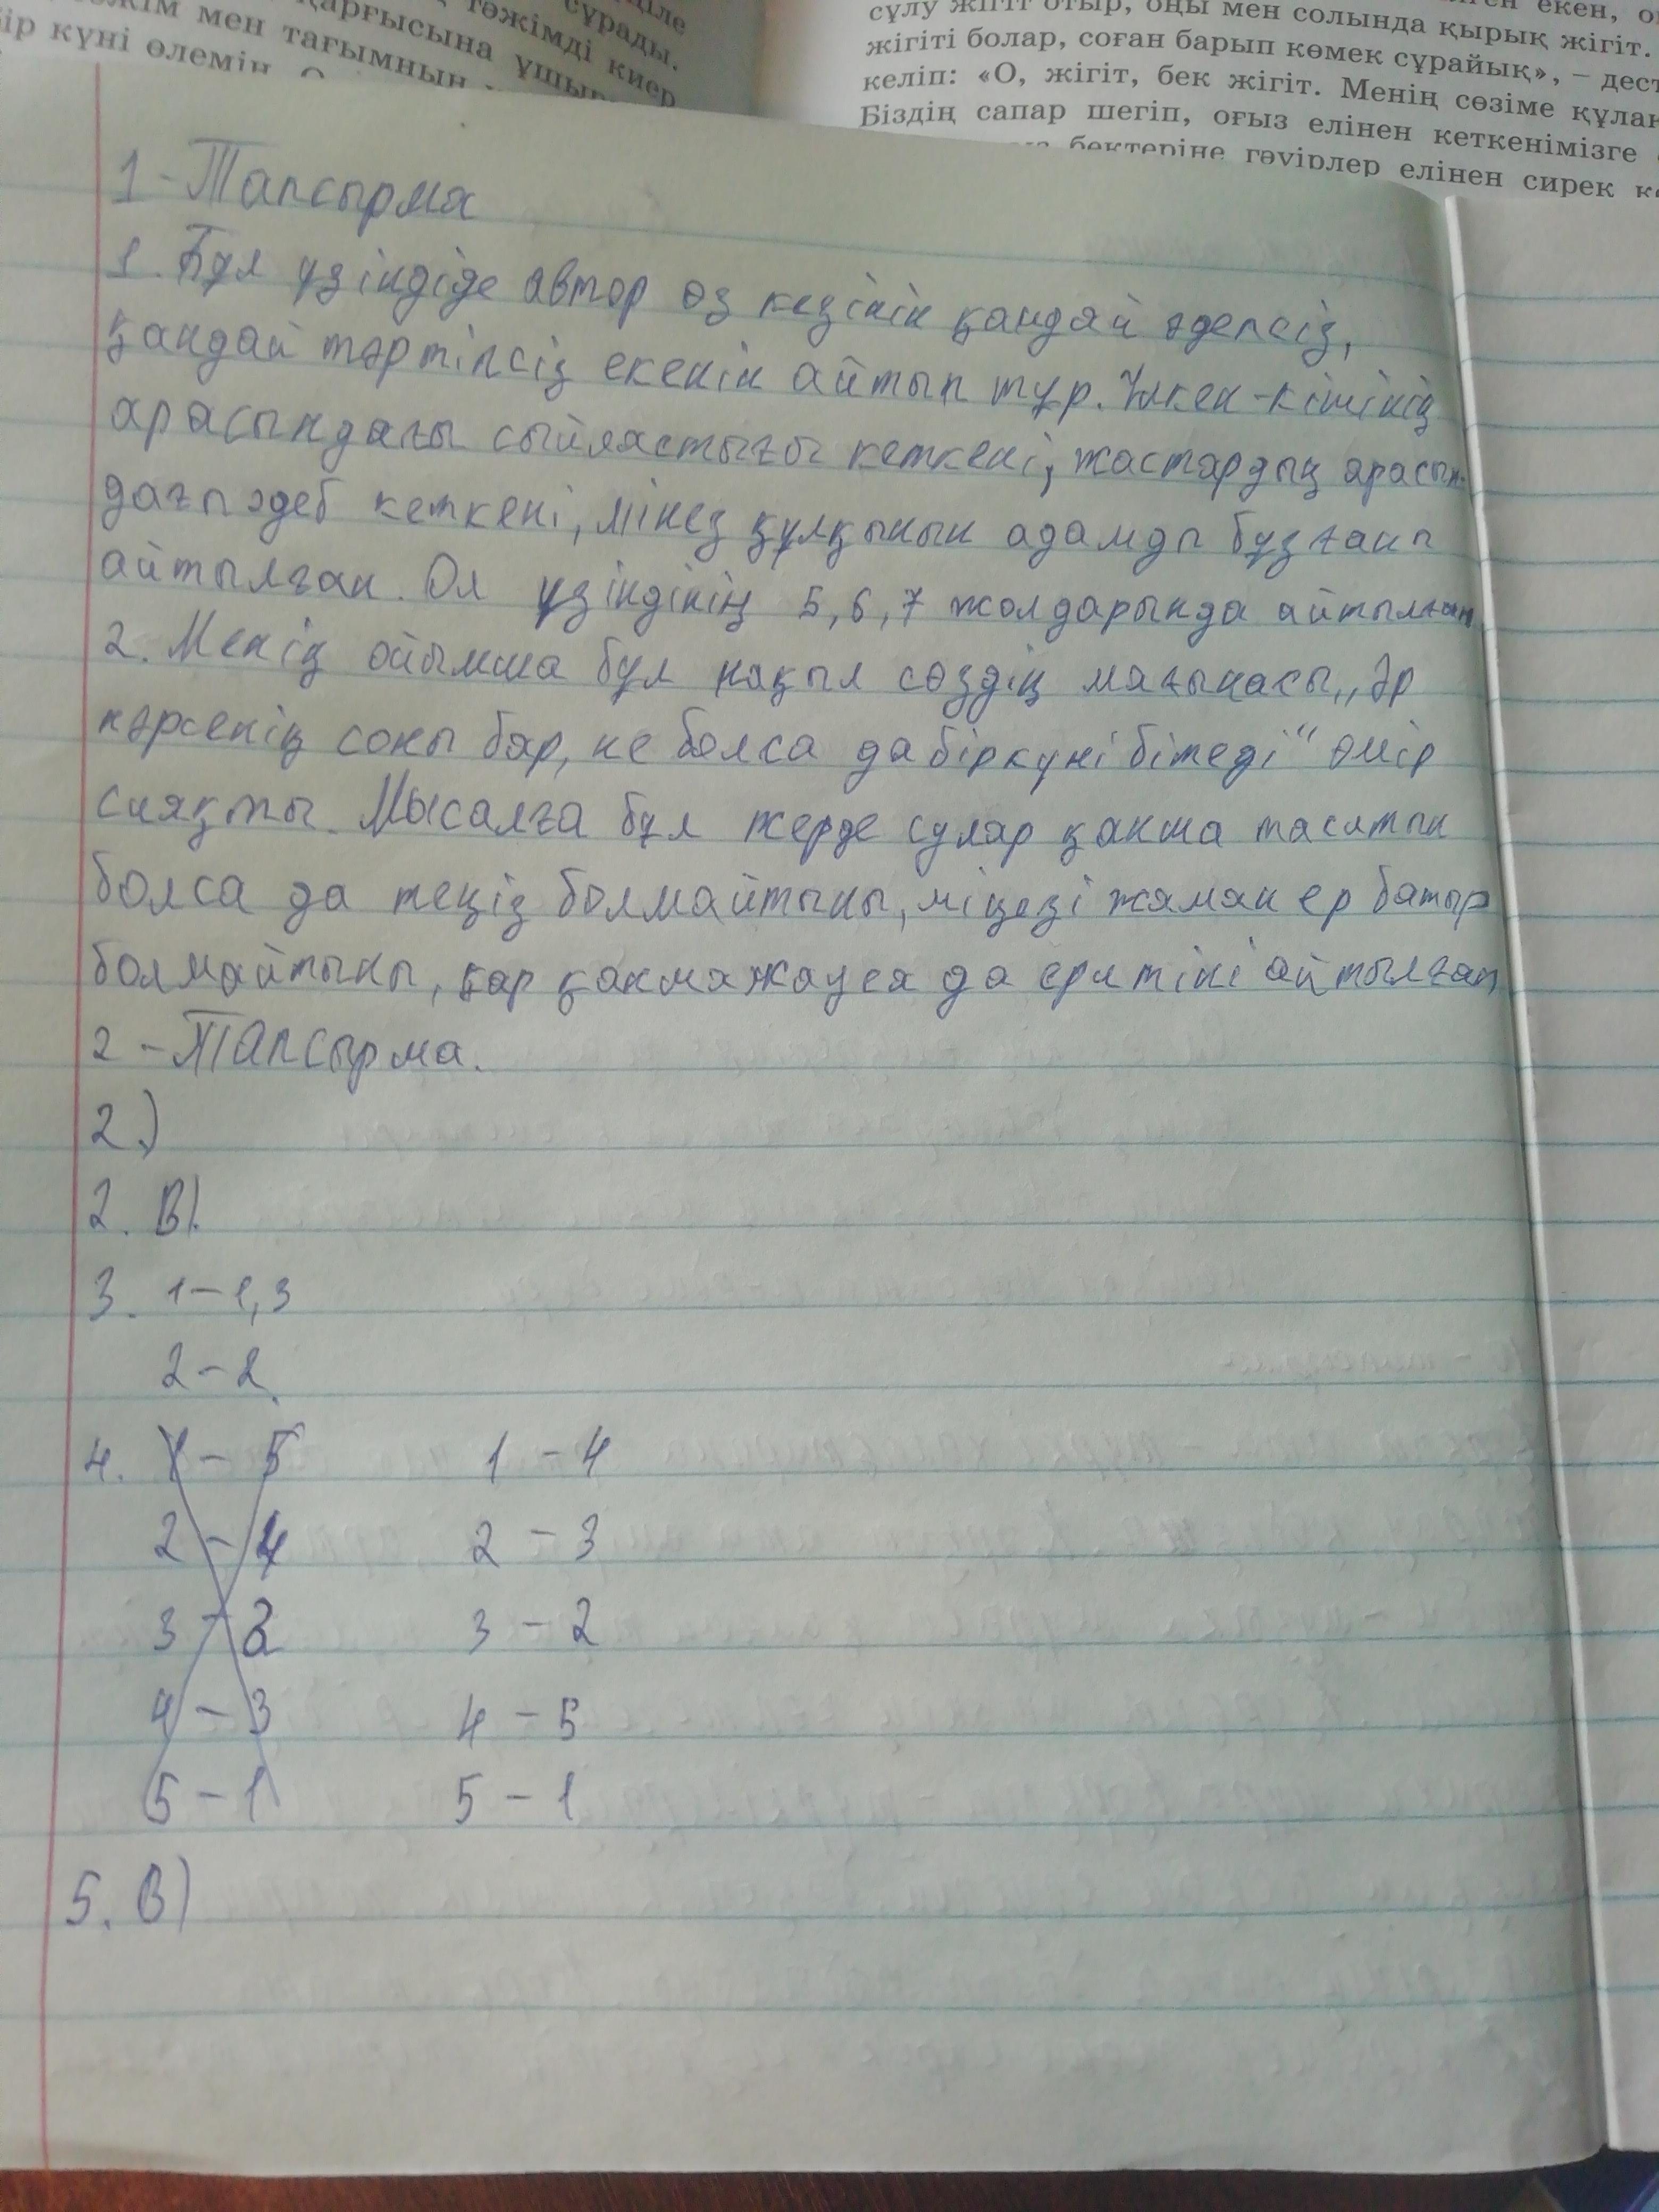 сұрады.
қарғысына ұшыр
тәжімді киер
мен тағымның
бір күні өлемін.
екен,
сұлу жігіт отыр, оңы мен солында қырық жігіт.
жігіті болар, соған барып көмек сұрайық», – дест
келіп: «О, жігіт, бек жігіт. Менің сөзіме құлақ
Біздің сапар шегіп, оғыз елінен кеткенімізге
бектеріне гәуірлер елінен сирек
1-Тапсырма
1. Бұл үзіндіде автор өз кезінін қандай әдепсіз,
қандай тәртіпсіз екенін айтып тұр. Үлкен-кішінің
арасындағы сыйластығы кеткені, жастардың арасын-
дағы әдеб кеткені, мінез құлқынын адамды бұзғаны
айтылған. Ол үзіндінің 5,6,7 жолдарында айтылған
2. Менің ойымша бұл нақыл сөздің мағынасы „Әр
нәрсенің соңы бар, не болса да бір күні бітеді“ өмір
сияқты. Мысалға бұл жерде сулар қанша тасытын
болса да теңіз болмайтыны, мінезі жаман ер батыр
болмайтыны, қар қанша жауса да еритіні айтылған
2-Тапсырма.
2.)
2. В).
3. 1–1,3
2–2.
4. 1–5 1–4
2–4 2–3
3–2 3–2
4–3 4–5
5–1 5–1
5. В)